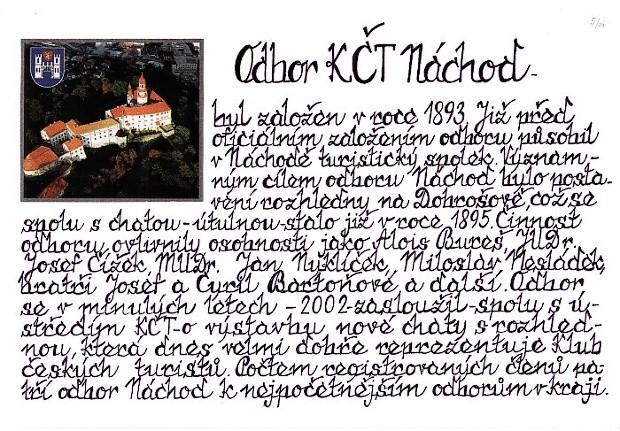 Odbor KČT Náchod -
byl založen v roce 1893. Již před
oficiálním založením odboru působil
v Náchodě turistický spolek. Význam-
ným cílem odboru Náchod bylo posta-
vení rozhledny na Dobrošově, což se
spolu s chatou-útulnou-stalo již v roce 1895. Činnost
odboru ovlivnily osobnosti jako Alois Bureš, JUDr.
Josef Čížek, MUDr. Jan Nyklíček, Miloslav Nesládek,
bratři Josef a Cyril Bartoňové a další. Odbor
se v minulých letech - 2002 - zasloužil-spolu s ú-
středím KČT-o výstavbu nové chaty s rozhled-
nou, která dnes velmi dobře reprezentuje Klub
českých turistů. Počtem registrovaných členů pa-
tří odbor Náchod k nejpočetnějším odborům v kraji.